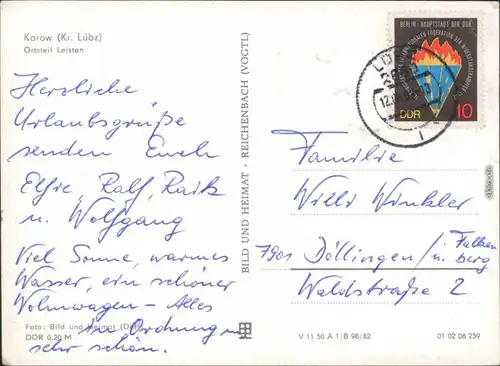 Karow (Kr. Lübz)
Ortsteil Leisten
Herzliche
Urlaubsgrüße
senden Euch
Elfie, Ralf, Raik
u. Wolfgang
Viel Sonne, warmes
Wasser, ein schöner
Wohnwagen - Alles
in Ordnung u.
sehr schön.
Foto: Bild und Heimat
DDR 0,20 M
BILD UND HEIMAT · REICHENBACH (VOGTL)
BERLIN · HAUPTSTADT DER DDR
DDR
10
Familie
Willi Winkler
7901 Döllingen/ü. Falken
berg
Waldstraße 2
V 11 50 A 1/B 98/82
01 02 06 259